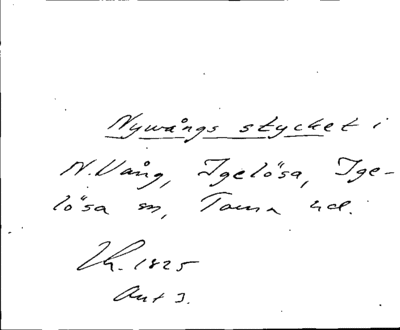 Nywångs stycket i
N. Vång, Igelösa, Ige-
lösa sn, Torna hd.
Ant 3.